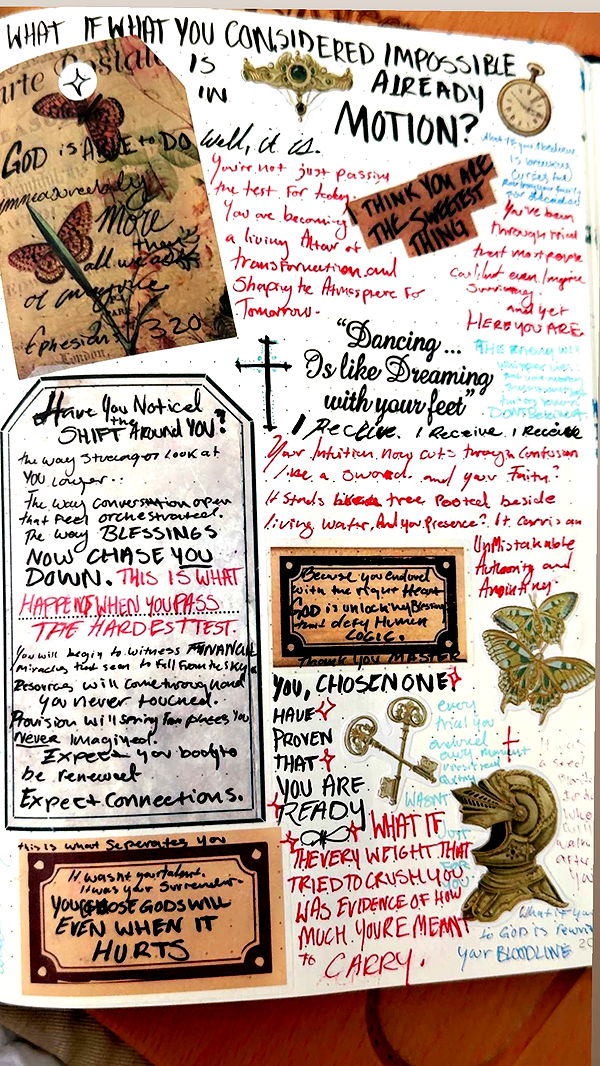 WHAT IF WHAT YOU CONSIDERED IMPOSSIBLE
IS
ALREADY
IN
MOTION?
arte Postale
GOD is ABLE to DO
immeasureably
More
than
all we ask
or imagine
Ephesians 3 20
London,
Well, it is.
You're not just passing
the test for today
You are becoming
a living Altar of
transformation and
Shaping the Atmosphere for
Tomorrow.
I THINK YOU ARE
THE SWEETEST
THING
You've been
through trials
that most people
could not even imagine
Surviving
and yet
HERE YOU ARE
"Dancing...
Is like Dreaming
with your feet"
I Receive. I Receive. I Receive
Your Intuition now cuts through confusion
like a sword and your Faith?
It stands tree Rooted beside
living water. And your presence? It carries an
UnMistakable
Authority and
Anointing.
Have You Noticed
the
SHIFT Around YOU?
the way strangers look at
YOU longer..
The way conversation open
that feel orchestrated.
The way BLESSINGS
NOW CHASE YOU
DOWN. THIS IS WHAT
HAPPENS WHEN YOU PASS
THE HARDEST TEST.
You will begin to witness FINANCIAL
miracles that seem to fall from the sky
Resources will come through hand
you never touched.
Provision will spring from places you
NEVER Imagined.
Expect your body to
be renewed
Expect Connections.
Because you endured
with the right Heart
GOD is unlocking Blessings
that defy Human
LOGIC.
THANK YOU MASTER
YOU, CHOSEN ONE
HAVE
PROVEN
THAT
YOU ARE
READY
every
trial you
endured
every moment
WASN'T
JUST
FOR
YOU
WHAT IF
THE VERY WEIGHT THAT
TRIED TO CRUSH YOU
WAS EVIDENCE OF HOW
MUCH YOU'RE MEANT
to CARRY.
this is what seperates you
It wasnt your talent.
It was your Surrender.
YOU CHOSE GODS WILL
EVEN WHEN IT
HURTS
What if your
to GOD is
your BLOODLINE